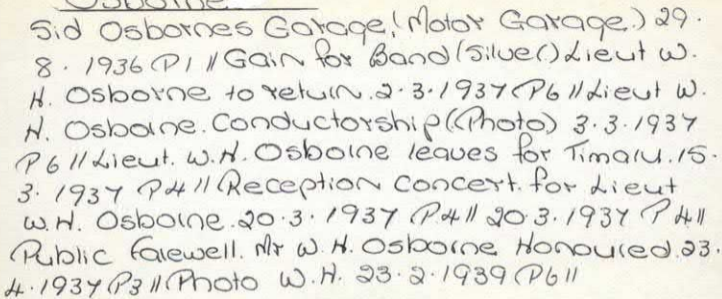 Osborne
Sid Osbornes Garage. (Motor Garage.) 29.
8. 1936 P1 // Gain for Band (Silver) Lieut W.
H. Osborne to return. 2.3.1937 P6 // Lieut W.
H. Osborne. Conductorship ((Photo) 3.3.1937
P6 // Lieut. W.H. Osborne leaves for Timaru. 15.
3. 1937 P4 // Reception Concert. for Lieut
W.H. Osborne. 20.3.1937 P.4 // 20.3.1937 P4 //
Public farewell. Mr W.H. Osborne Honoured. 23.
4.1937 P3 // Photo W.H. 23.2.1939 P6 //